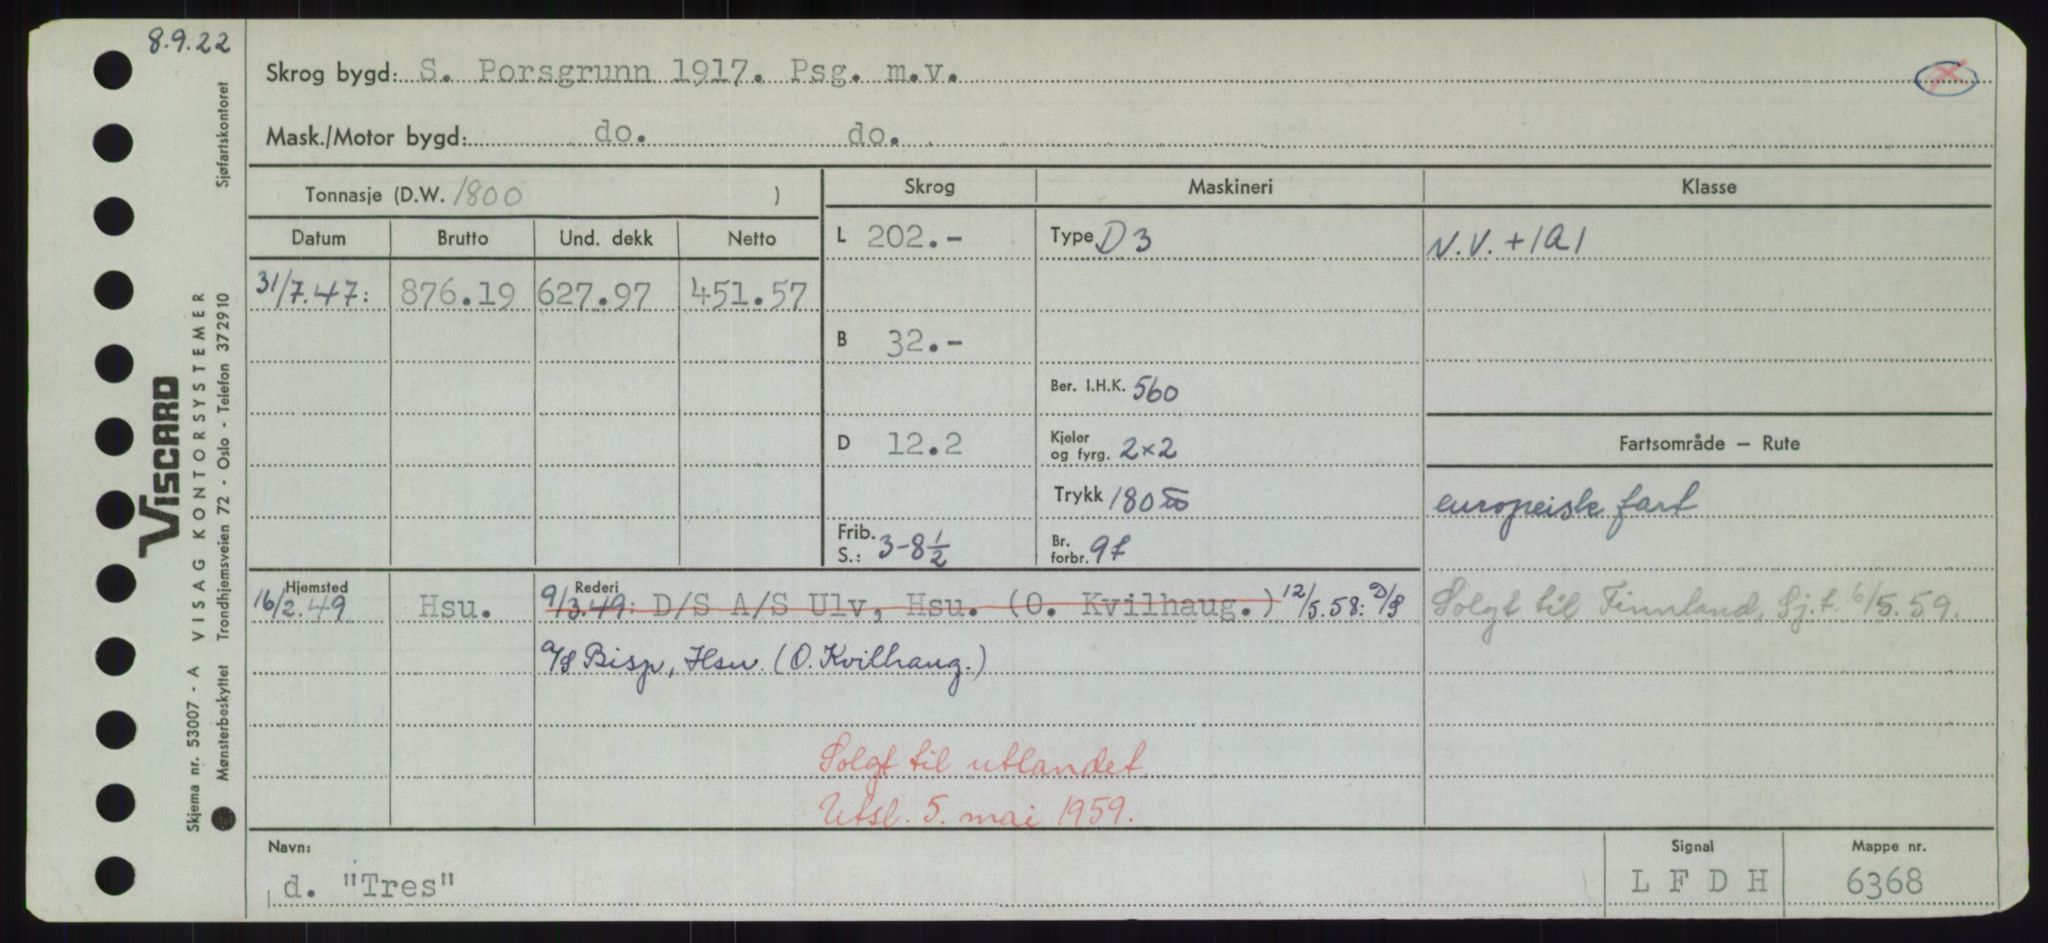 8.9.22
Skrog bygd: S. Porsgrunn 1917. Psg. m.v.
Mask./Motor bygd: do. do.
Tonnasje (D.W. 1800 )
Skrog Maskineri Klasse
Datum Brutto Und. dekk Netto
31/7.47: 876.19 627.97 451.57
L 202.-
B 32.-
D 12.2
Frib. S.: 3-8½
Type D3
Ber. I.H.K. 560
Kjeler og fyrg. 2×2
Trykk 180
Br. forbr. 9t
N.V. +1A1
Fartsområde — Rute
europeisk fart
Solgt til Finnland, Sj.f. 6/5.59.
Hjemsted Rederi
16/2.49 Hsu. 9/3.49: D/S A/S Ulv, Hsu. (O. Kvilhaug.) 12/5.58: D/S
A/S Bisp, Hsu. (O. Kvilhaug.)
Solgt til utlandet
Utsl. 5. mai 1959.
Navn: Signal Mappe nr.
d. "Tres" L F D H 6368
VISCARD
Skjema nr. 53007 - A VISAG KONTORSYSTEMER
Mønsterbeskyttet Trondhjemsveien 72 - Oslo - Telefon 372910 Sjøfartskontoret